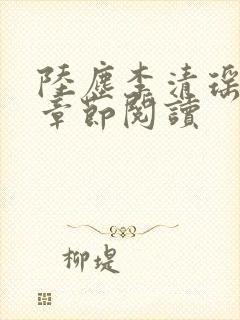 陸塵李清瑤
章節閱讀
柳堤